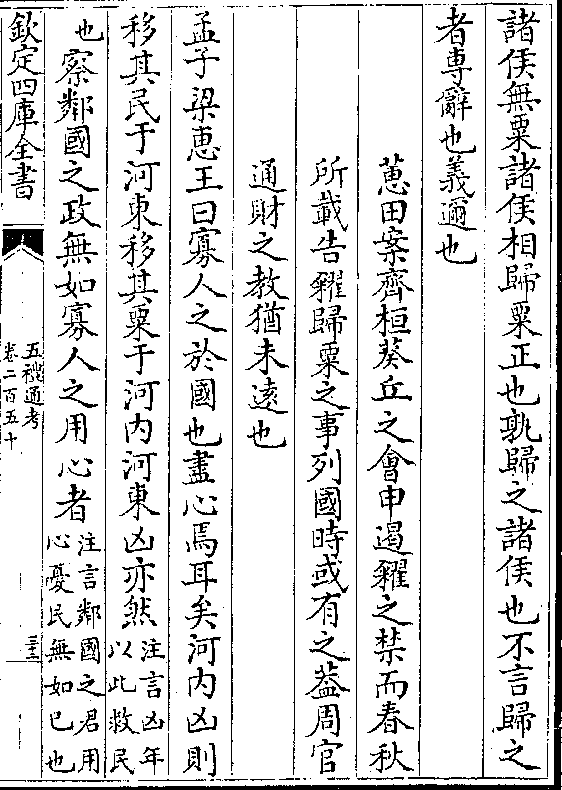 諸侯無粟諸侯相歸粟正也孰歸之諸侯也不言歸之
者専辭也義邇也
蕙田案齊桓葵丘之會申遏糴之禁而春秋
所載告糴歸粟之事列國時或有之葢周官
通財之教猶未逺也
孟子梁恵王曰寡人之於國也盡心焉耳矣河内凶則
移其民于河東移其粟于河内河東凶亦然注言凶年以此救民
也察鄰國之政無如寡人之用心者注言鄰國之君用心憂民無如已也
欽定四庫全書
五禮通考
卷二百五十
三十三